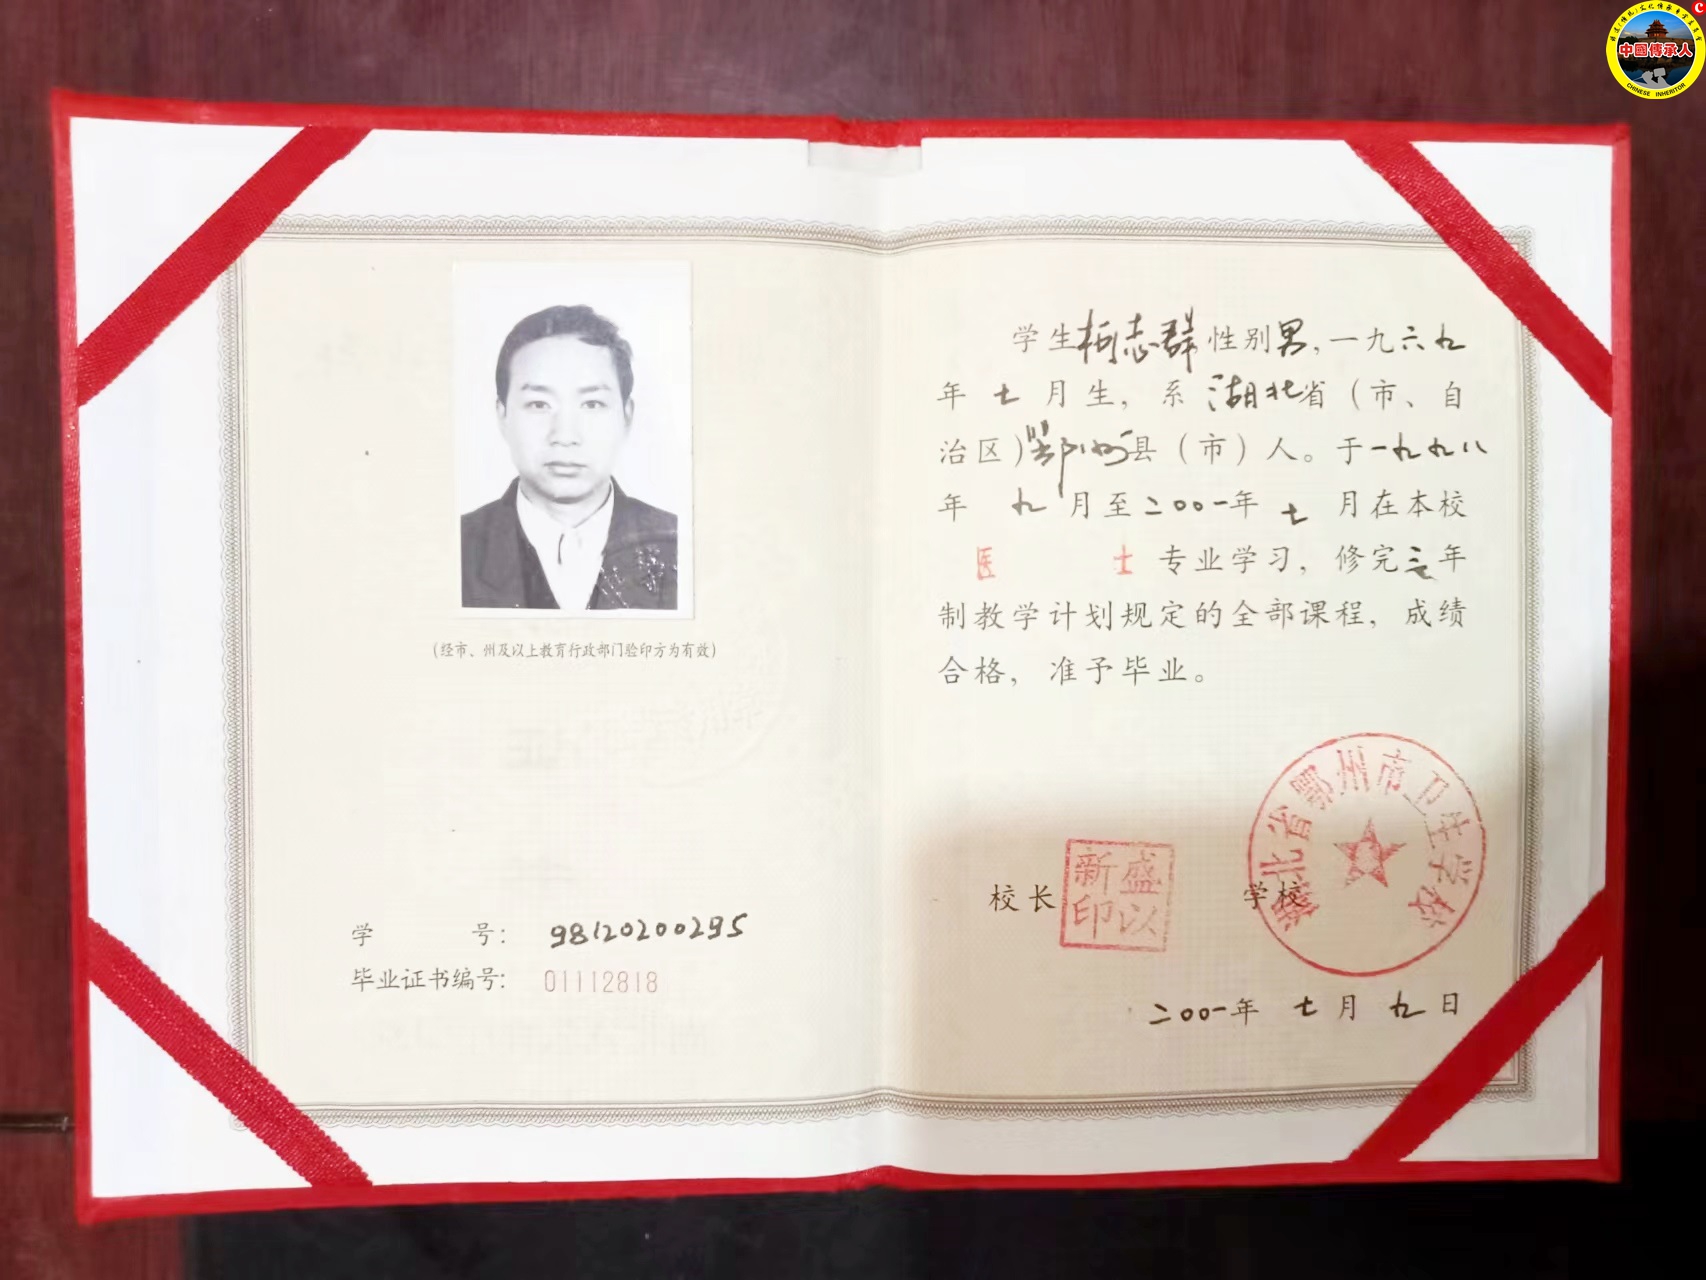 中國傳承人
CHINESE INHERITOR
（经市、州及以上教育行政部门验印方为有效）
学 号： 98120200295
毕业证书编号： 01112818
学生柯志群性别男，一九六九
年七月生，系湖北省（市、自
治区）鄂州县（市）人。于一九九八
年九月至二〇〇一年七月在本校
医士专业学习，修完三年
制教学计划规定的全部课程，成绩
合格，准予毕业。
校长
盛以新印
学校
湖北省鄂州市卫生学校
二〇〇一年七月九日